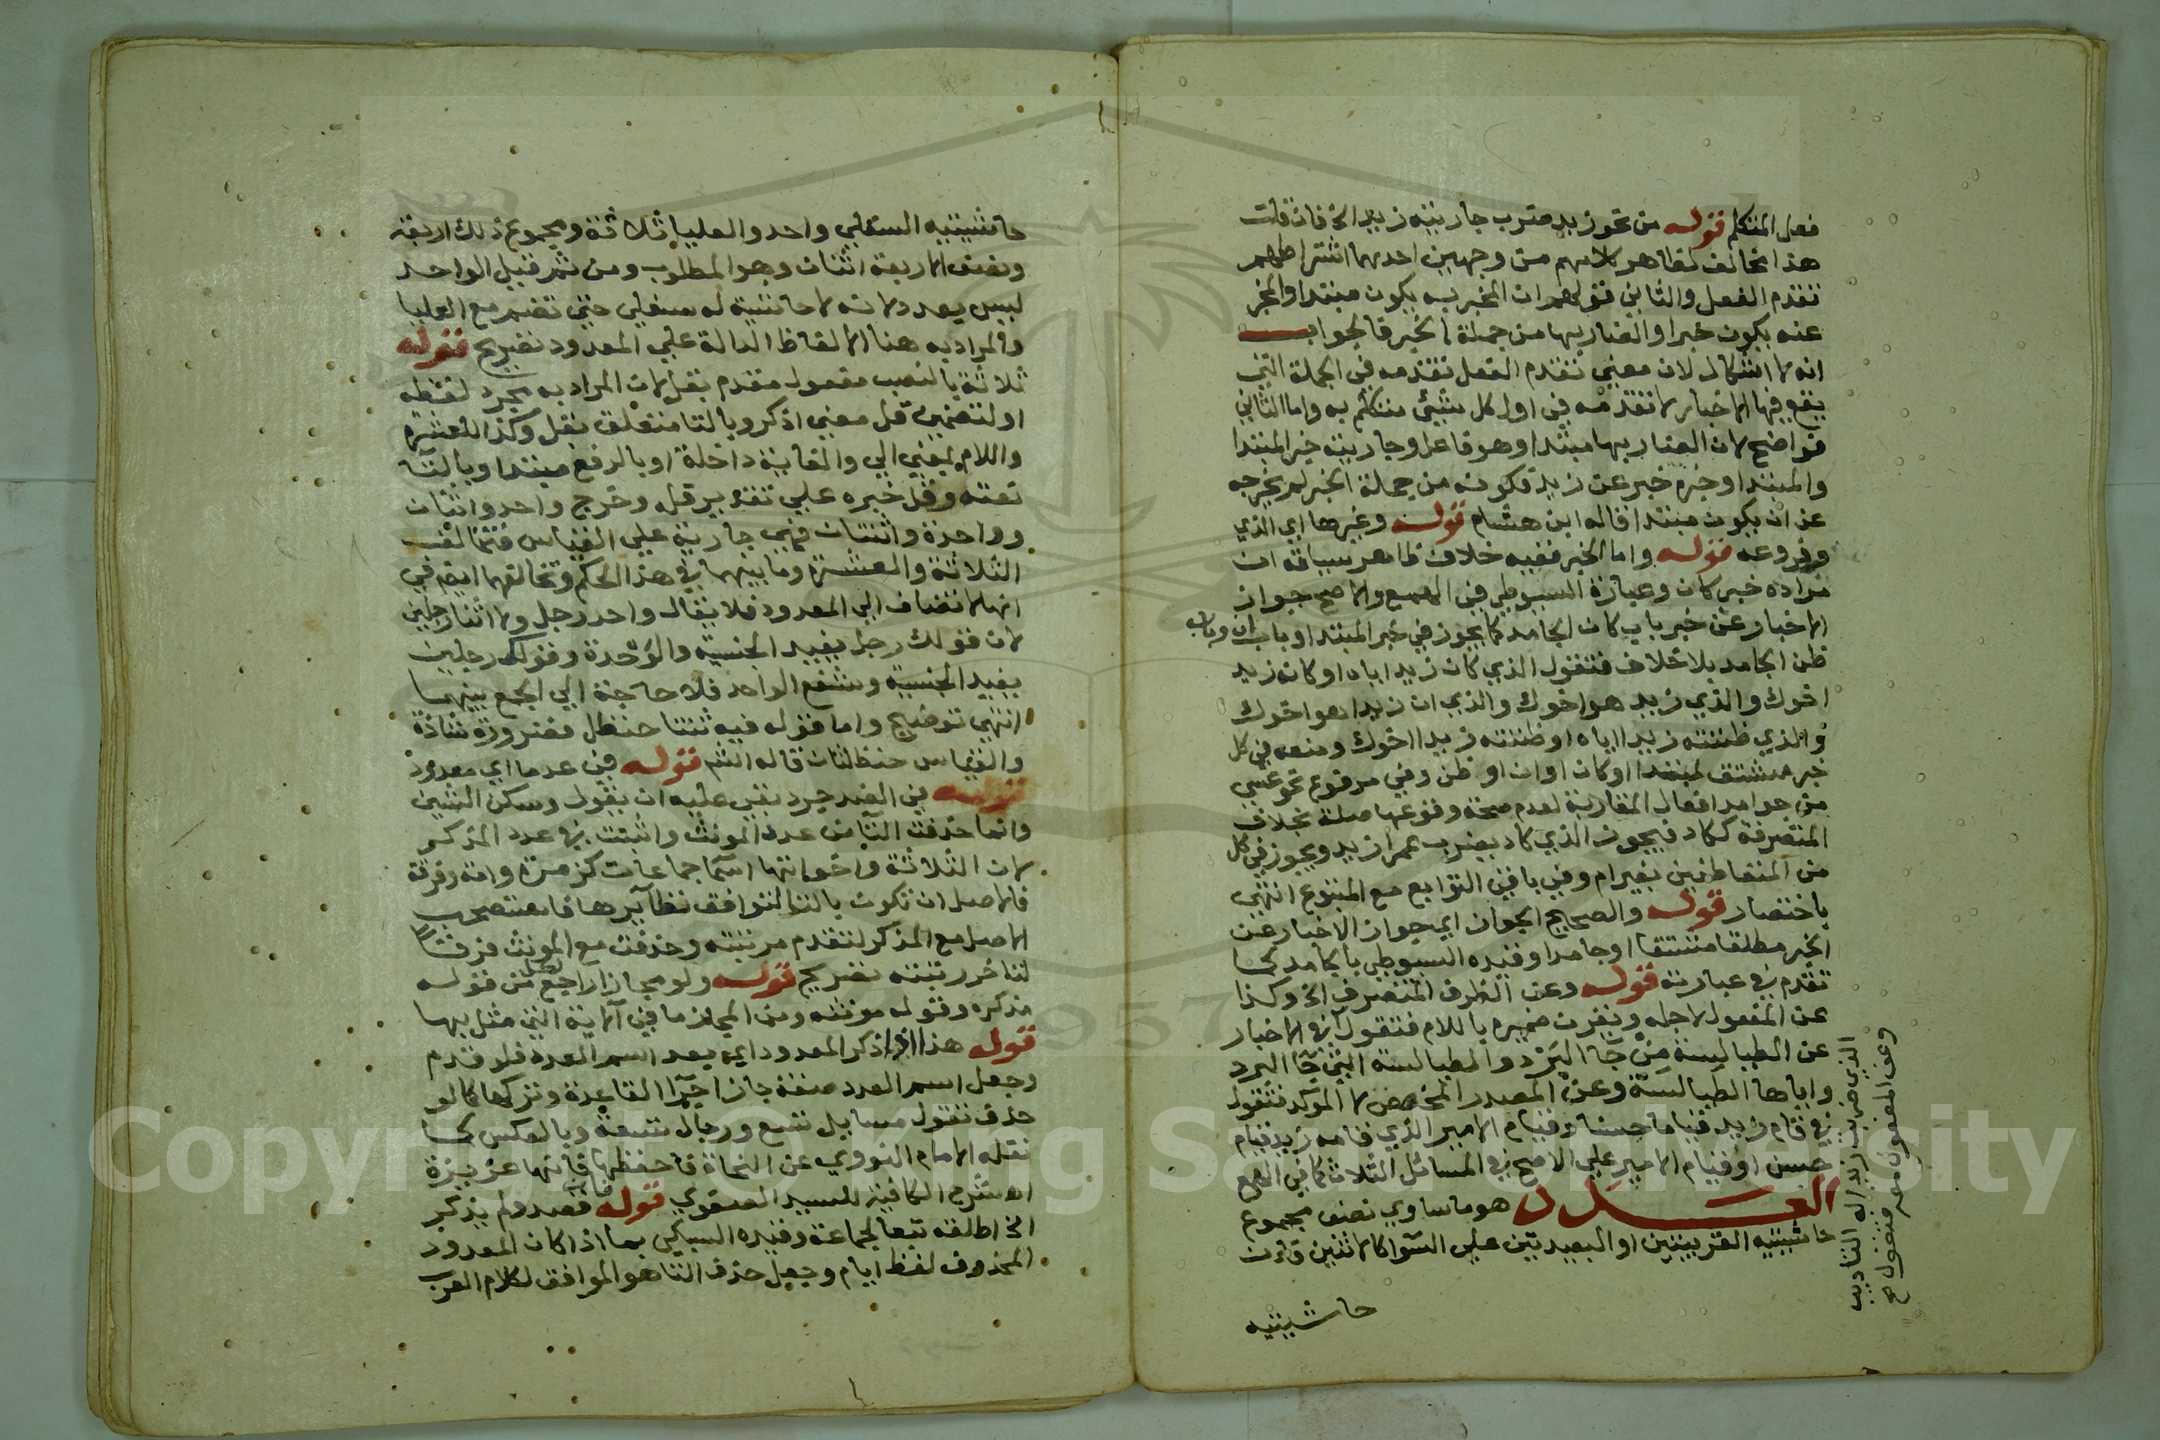 فعل المتكلم قوله من نحو زيد ضرب جاريته زيد الخ فان قلت
هذا مخالف لظاهر كلامهم من وجهين احدهما اشتراطهم
تقدم الفعل والثاني قولهم ان المخبر به يكون مبتدا والمخبر
عنه يكون خبرا والضارب هنا من جملة الخبر فالجواب
انه لا اشكال لان معنى تقدم الفعل تقدمه في الجملة التي
يقع فيها الاخبار لا تقدمه في اول كل شيئ متكلم به واما الثاني
فواضح لان الضاربها مبتدا وهو فاعل وجاريته خبر المبتدا
والمبتدا وخبره خبر عن زيد فكونه من جملة الخبر لم يخرجه
عن ان يكون مبتدا قاله ابن هشام قوله وغيرها اي الذي
وفروعه قوله واما الخبر ففيه خلاف ظاهر سياقه ان
مراده خبر كان وعبارة السيوطي في الهمع والاصح جواز
الاخبار عن خبر باب كان الجامد كما يجوز في خبر المبتدا وباب ان وباب
ظن الجامد بلا خلاف فتقول الذي كان زيد اياه او كانه زيد
اخوك والذي زيد هو اخوك والذي ان زيدا هو اخوك
والذي ظننته زيدا اياه او ظننته زيدا اخوك ومنعه في كل
خبر مشتق لمبتدا او كان او ان او ظن وفي مرفوع نحو عسى
من جوامد افعال المقاربة لعدم صحة وقوعها صلة بخلاف
المتصرفة ككاد فيجوز الذي كاد يضرب عمرا زيد ويجوز في كل
من المتعاطفين بغير ام وفي باقي التوابع مع المتبوع انتهى
باختصار قوله والصحيح الجواز اي جواز الاخبار عن
الخبر مطلقا مشتقا او جامدا وقيده السيوطي بالجامد كما
تقدم في عبارته قوله وعن الظرف المتصرف الخ وكذا
عن المفعول لاجله ويقرن ضميره باللام فتقول في الاخبار
عن الطيالسة من جا البرد والطيالسة التي جا البرد
واياها الطيالسة وعن المصدر المخصص لا المؤكد فتقول
في قام زيد قياما حسنا وقيام الامير الذي قامه زيد قيام
حسن او قيام الامير على الاصح في المسائل الثلاث كما في الهمع
العدد هو ما ساوى نصف مجموع
حاشيتيه القريبتين او البعيدتين على السوا كالاثنين فان
حاشيتيه
وعن المفعول معه فتقول في
الذي ضرب زيد اله التاديب
حاشيتيه السفلى واحد والعليا ثلاثة ومجموع ذلك اربعة
ونصف الاربعة اثنان وهو المطلوب ومن ثم قيل الواحد
ليس بعدد لانه لا حاشية له سفلى حتى تضم مع العليا
والمراد به هنا الالفاظ الدالة على المعدود تصريح قوله
ثلاثة بالنصب مفعول مقدم بقل لان المراد به مجرد لفظه
او لتضمين قل معنى اذكر وبالتا متعلق بقل وكذا للعشره
واللام بمعنى الى والغاية داخلة او بالرفع مبتدا وبالتا
نعته وقل خبره على تقدير قله وخرج واحد واثنان
وواحدة واثنتان فهي جارية على القياس فتخالف
الثلاثة والعشرة وما بينهما في هذا الحكم وتخالفها ايضا في
انها لا تضاف الى المعدود فلا يقال واحد رجل ولا اثنا رجلين
لان قولك رجل يفيد الجنسية والوحدة وقولك رجلين
يفيد الجنسية وشفع الواحد فلا حاجة الى الجمع بينهما
انتهى توضيح واما قوله فيه ثنتا حنظل فضرورة شاذة
والقياس حنظلتان قاله الشم قوله في عد ما اي معدود
قوله في الضد جرد بقي عليه ان يقول وسكن الشين
وانما حذفت التا من عدد المونث واثبتت في عدد المذكر
لان الثلاثة واخواتها اسما جماعات كزمرة وامة وفرقة
فالاصل ان تكون بالتا لتوافق نظايرها فاستصحب
الاصل مع المذكر لتقدم مرتبته وحذفت مع المونث فرقا
لتاخر رتبته تصريح قوله ولو مجازا راجع لكل من قوله
مذكره وقوله مونثه ومن المجاز ما في الاية التي مثل بها
قوله هذا اذا ذكر المعدود اي بعد اسم العدد فلو قدم
وجعل اسم العدد صفة جاز اجرا القاعدة وتركها كما لو
حذف تقول مسايل تسع ورجال تسعة وبالعكس كما
نقله الامام النووي عن النحاة فاحفظها فانها عزيزة
اهـ شرح الكافية للسيد الصفوي قوله فان قصد ولم يذكر
الخ اطلقه تبعا لجماعة وقيده السبكي بما اذا كان المعدود
المحذوف لفظ ايام وجعل حذف التا هو الموافق لكلام العرب
Copyright © King Saud University
1957